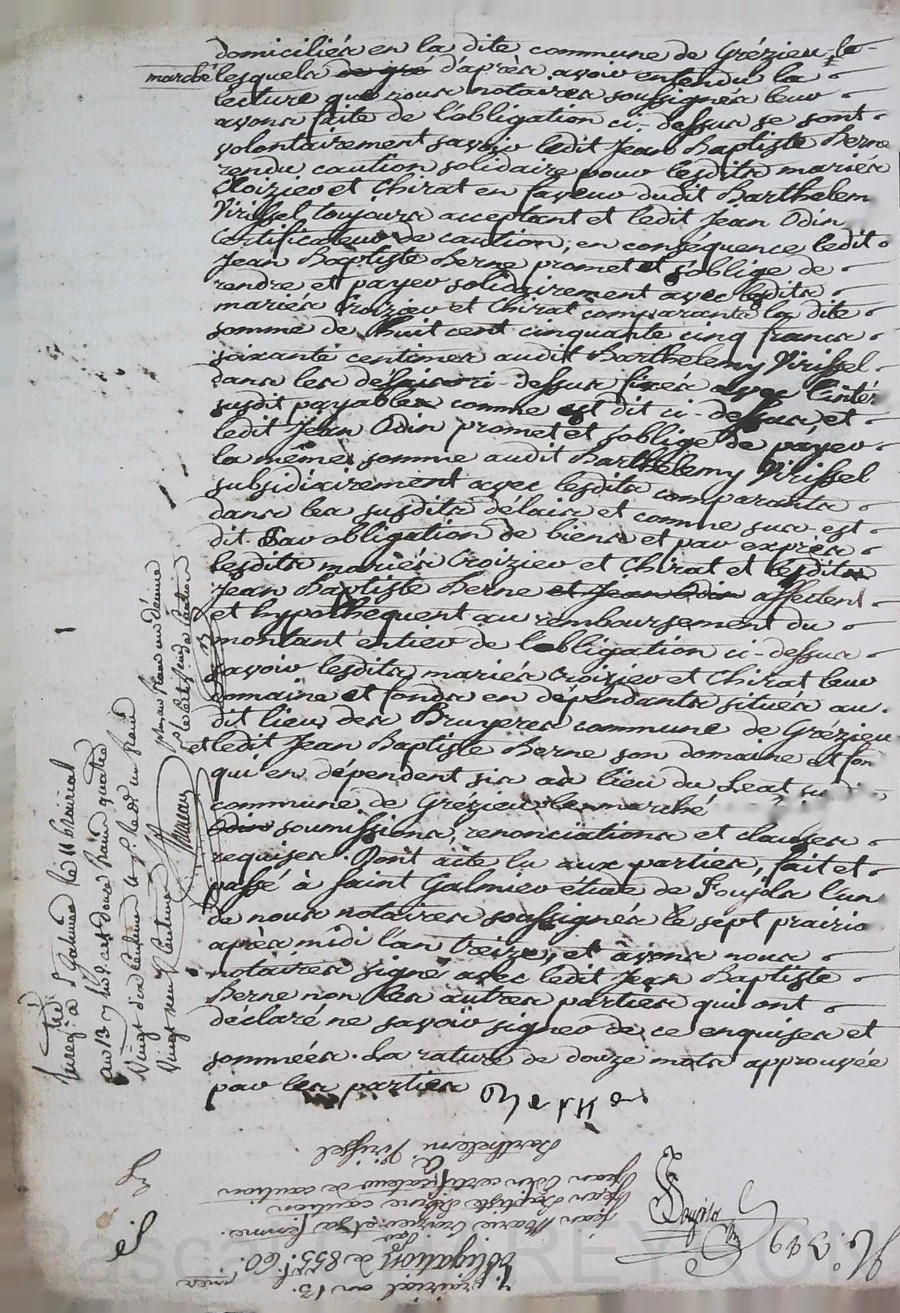 domiciliés en la dite commune de Grézieu-le-
marché lesquels de gré d'après avoir entendu la
lecture que nous notaires soussignés leur
avons faite de l'obligation ci-dessus se sont
volontairement savoir ledit Jean Baptiste Berne
rendu caution solidaire pour lesdits mariés
Croizier et Chirat en faveur dudit Barthelem
Virissel, toujours acceptant et ledit Jean Odin
certificateur de caution; en conséquence ledit
Jean Baptiste Berne promet et s'oblige de
rendre et payer solidairement avec lesdits
mariés Croizier et Chirat comparants la dite
somme de huit cent cinquante cinq francs
soixante centimes audit Barthelemy Virissel
dans les délais ci-dessus fixés avec l'intér
susdit payables comme est dit ci-dessus, et
ledit Jean Odin promet et s'oblige de payer
la même somme audit Barthelemy Virissel
subsidiairement avec lesdits comparants
dans les susdits délais et comme sus est
dit. Par obligation de biens et par exprès
lesdits mariés Croizier et Chirat et lesdits
Jean Baptiste Berne et Jean Odin affectent
et hypothèquent au remboursement du
montant entier de l'obligation ci-dessus
savoir lesdits mariés Croizier et Chirat leur
domaine et fonds en dépendants situés au
dit lieu des Bruyeres commune de Grézieu
et ledit Jean Baptiste Berne son domaine et fon
qui en dépendent sis au lieu du
commune de Grézieu le marché
Odin soumissions, renonciations et clauses
requises. Dont acte lu aux parties, fait et
passé à Saint Galmier étude de Foujols l'un
de nous notaires soussignés le sept prairia
après midi l'an treize, et avons nous
notaires signé avec ledit Jean Baptiste
Berne non les autres parties qui ont
déclaré ne savoir signer de ce enquises et
sommées. La rature de douze mots approuvée
par les parties
Enregé. à St. Galmier le 11 prairial
an 13
Vingt
Vingt neuf Centimes
Foujols
No. 349
7 prairial an 13.
obligation de 855 f. 60
par
Jean Marie Croizier et sa femme.
Jean Baptiste Berne caution
Jean Odin certificateur de caution
à
Barthelemi Virissel.